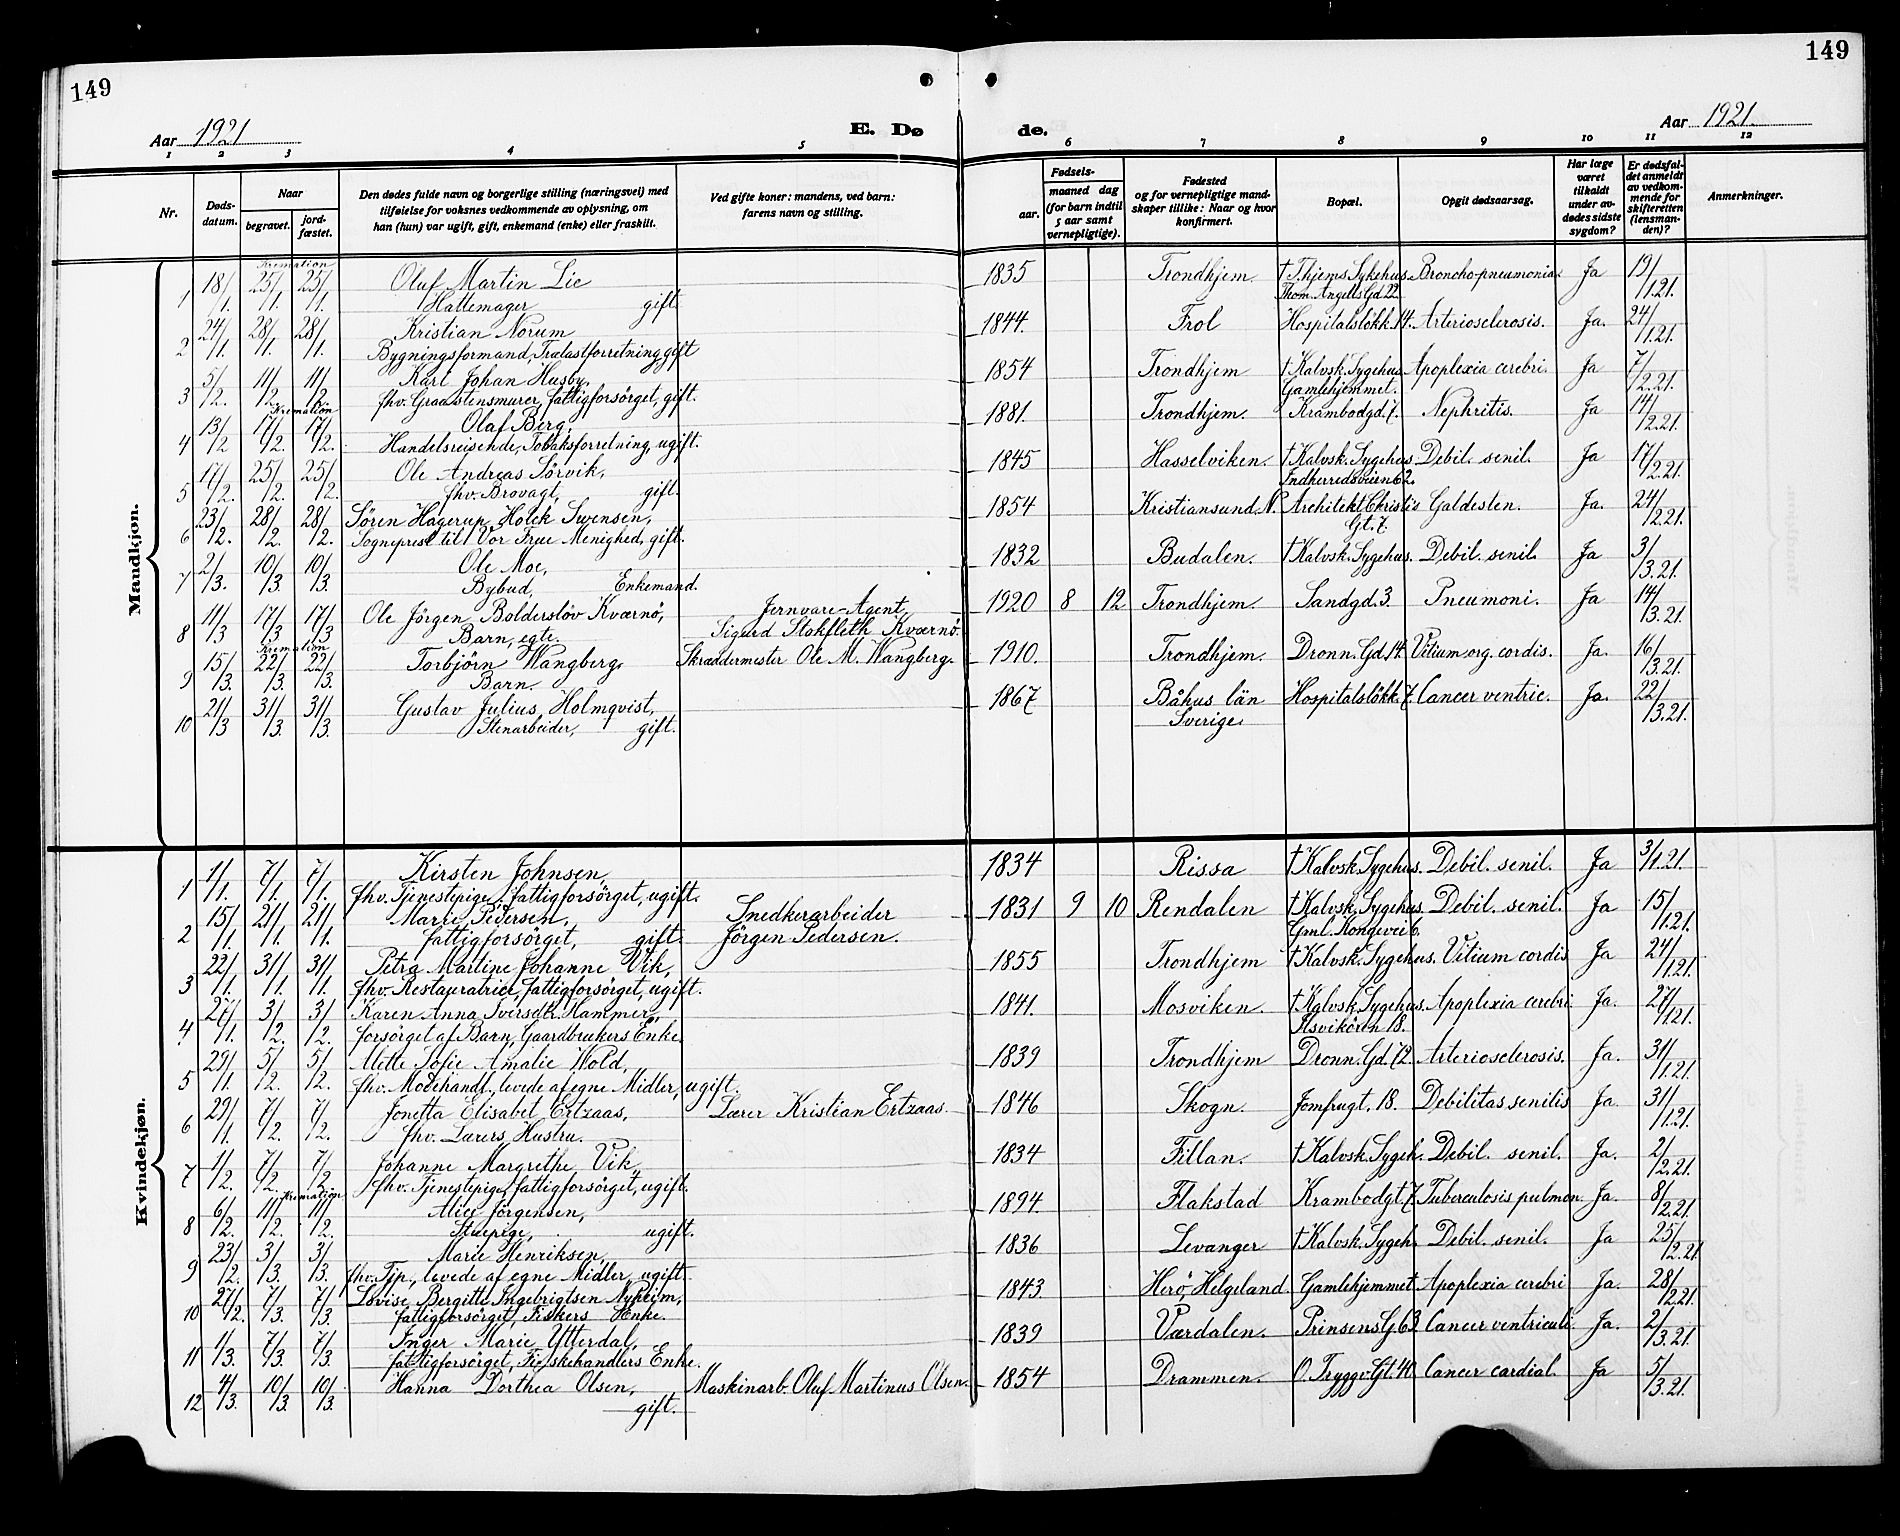 149
149
Aar 1921
E. Dø
de.
Aar 1921.
1 2 3 4 5 6 7 8 9 10 11 12
Nr.
Døds-
datum.
Naar
begravet.
jord-
fæstet.
Den dødes fulde navn og borgerlige stilling (næringsvei) med
tilføielse for voksnes vedkommende av oplysning, om
han (hun) var ugift, gift, enkemand (enke) eller fraskilt.
Ved gifte koner: mandens, ved barn:
farens navn og stilling.
Fødsels-
aar.
maaned dag
(for barn indtil
5 aar samt
vernepligtige).
Fødested
og for vernepligtige mand-
skaper tillike: Naar og hvor
konfirmert.
Bopæl.
Opgit dødsaarsag.
Har læge
været
tilkaldt
under av-
dødes sidste
sygdom?
Er dødsfal-
det anmeldt
av vedkom-
mende for
skifteretten
(lensman-
den)?
Anmerkninger.
Mandkjøn.
Kremation
1 18/1. 25/1. 25/1. Oluf Martin Lie 1835 Trondhjem. † T.hjems Sykehus. Broncho-pneumonia. Ja 19/1.21.
Hattemager gift. Thom. Angells Gd 22.
2 24/1. 28/1. 28/1. Kristian Norum 1844. Frol Hospitalsløkk. 14. Arteriosclerosis. Ja. 24/1.21.
Bygningsformand, Trælastforretning gift
3 5/2. 11/2. 11/2. Karl Johan Husby, 1854 Trondhjem † Kalvsk. Sygehus Apoplexia cerebri. Ja 7/2.21.
fhv. Graastensmurer, fattigforsörget, gift. Gamlehjemmet.
Kremation
4 13/2 17/2. 17/2. Olaf Berg, 1881. Trondhjem. Krambodgd. 7. Nephritis. Ja 14/2.21.
Handelsreisende, Tobaksforretning, ugift.
5 17/2. 25/2. 25/2. Ole Andreas Sörvik, 1845 Hasselviken. † Kalvsk. Sygehus. Debil. senil. Ja 17/2.21.
fhv. Brovagt, gift. Indherredsveien 62.
6 23/2. 28/2. 28/2. Sören Hagerup Holck Swensen, 1854 Kristiansund N. Architekt Christies Galdesten. Ja 24/2.21.
Sogneprest til Vor Frue Menighed, gift. Gt. 7.
7 2/3. 10/3. 10/3. Ole Moe, 1832 Budalen. † Kalvsk. Sygehus. Debil. senil. Ja 3/3.21.
Bybud, Enkemand.
8 11/3 17/3 17/3 Ole Jörgen Boldersløv Kværnö, Jernvare-Agent, 1920 8 12 Trondhjem. Sandgd. 3. Pneumoni. Ja 14/3.21.
Barn, egte. Sigurd Stokfleth Kværnö.
Kremation
9 15/3. 22/3. 22/3. Torbjörn Wangberg, Skræddermester Ole M. Wangberg. 1910. Trondhjem. Dronn. Gd. 14. Vitium org. cordis. Ja. 16/3.21.
Barn.
10 21/3 31/3. 31/3. Gustav Julius Holmqvist, 1867 Båhus län Hospitalsløkk. 7. Cancer ventric. Ja. 22/3.21.
Stenarbeider, gift. Sverige.
Kvindekjøn.
1 1/1. 7/1. 7/1. Kirsten Johnsen, 1834 Rissa † Kalvsk. Sygehus. Debil. senil. Ja 3/1.21.
fhv. Tjenestepige, fattigforsörget, ugift.
2 15/1. 21/1. 21/1. Marie Pedersen, Snedkerarbeider 1831 9 10 Rendalen † Kalvsk. Sygehus Debil. senil. Ja 15/1.21.
fattigforsörget, gift. Jörgen Pedersen. Gml. Kongevei 6.
3 22/1. 31/1. 31/1. Petra Martine Johanne Vik, 1855 Trondhjem † Kalvsk. Sygehus. Vitium cordis Ja 24/1.21.
fhv. Restauratrice, fattigforsörget, ugift.
4 27/1. 3/2. 3/2. Karen Anna Sivrsdt. Hammer, 1841. Mosviken. † Kalvsk. Sygehus. Apoplexia cerebri Ja. 27/1.21.
forsörget af Barn, Gaardbrukers Enke. Ilsvikören 18.
5 29/1. 5/2. 5/2. Mette Sofie Amalie Wold, 1839 Trondhjem Dronn. Gd. 72. Arteriosclerosis. Ja. 31/1.21.
fhv. Modehandl, levede af egne Midler, ugift.
6 29/1. 7/2. 7/2. Jonetta Elisabet Ertzaas, Lærer Kristian Ertzaas. 1846 Skogn. Jomfrugt. 18. Debilitas senilis Ja 31/1.21.
fhv. Lærers Hustru.
7 1/2. 7/2. 7/2 Johanne Margrethe Vik, 1834 Fillan. † Kalvsk. Sygeh. Debil. senil. Ja. 2/2.21.
fhv. Tjenestepige, fattigforsörget, ugift.
Kremation
8 6/2. 11/2. 11/2. Alice Jörgensen, 1894. Flakstad Krambodgt. 7. Tuberculosis pulmon. Ja. 8/2.21.
Stuepige, ugift.
9 23/2. 3/3. 3/3. Marie Henriksen, 1836 Levanger † Kalvsk. Sygeh. Debil. senil. Ja 25/2.21
fhv. Tjp., levede af egne Midler, ugift.
10 27/2. 7/3. 7/3. Lovise Bergitte Ingebrigtsen Nyheim, 1843. Herö, Helgeland. Gamlehjemmet. Apoplexia cerebri Ja. 28/2.21.
fattigforsörget, Fiskers Enke.
11 1/3. 7/3. 7/3. Inger Marie Ytterdal, 1839 Værdalen. Prinsens G 63. Cancer ventriculi. Ja. 2/3.21.
fattigforsörget, Fiskehandlers Enke.
12 4/3. 10/3 10/3. Hanna Dorthea Olsen, Maskinarb. Oluf Martinus Olsen. 1854 Drammen. O. Tryggv. Gt. 40. Cancer cardial. Ja 5/3.21.
gift.